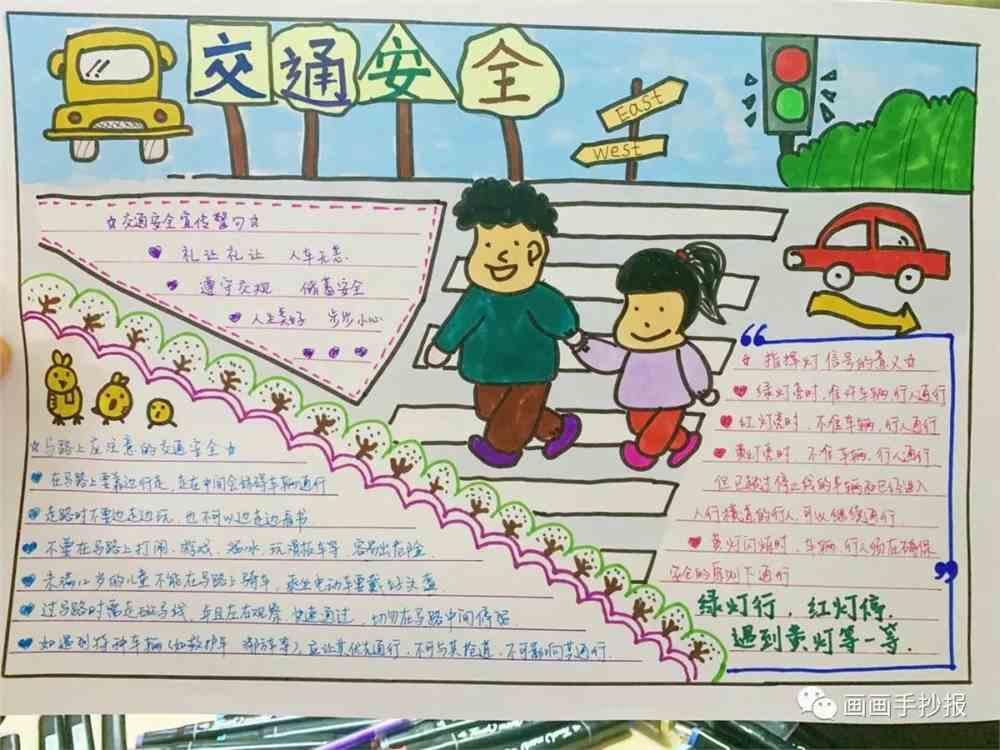 交通安全
East
West
☆交通安全宣传警句☆
礼让礼让 人车无恙
遵守交规 储蓄安全
人生美好 步步小心
☆指挥灯信号的意义☆
绿灯亮时,准许车辆,行人通行
红灯亮时,不准车辆,行人通行
黄灯亮时,不准车辆,行人通行
但已越过停止线的车辆和已经进入
人行横道的行人,可以继续通行
黄灯闪烁时,车辆,行人须在确保
安全的原则下通行
绿灯行,红灯停,
遇到黄灯等一等.
☆马路上应注意的交通安全☆
在马路上要靠边行走,走在中间会妨碍车辆通行
走路时不要边走边玩,也不可以边走边看书
不要在马路上打闹.游戏.溜冰.玩滑板车等.容易出危险
未满12岁的儿童不能在马路上骑车,乘坐电动车要戴好头盔
过马路时需走斑马线,并且左右观察,快速通过,切勿在马路中间停留
如遇到特种车辆(如救护车 消防车),应让其优先通行,不可与其抢道,不可影响其通行.
画画手抄报